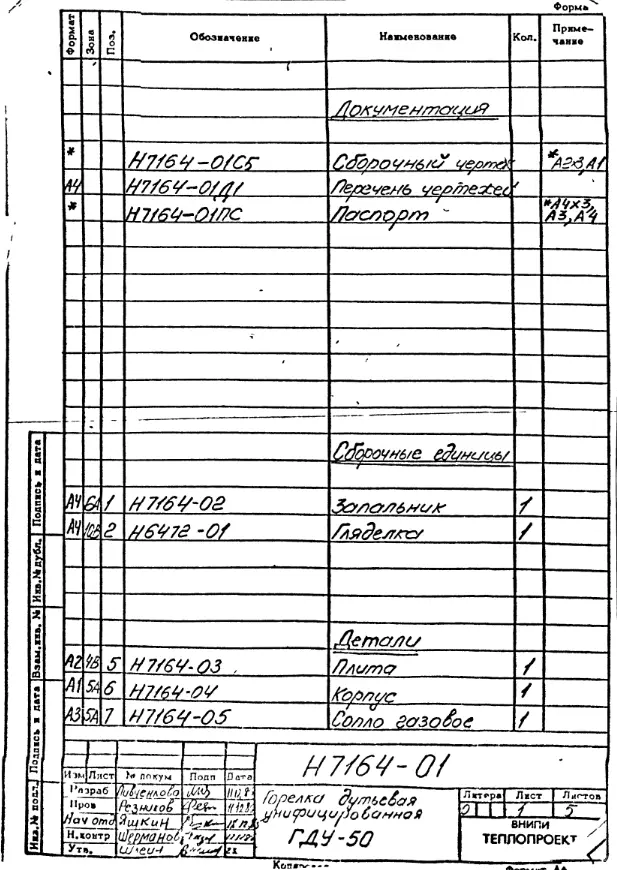 Форма
Формат Зона Поз. Обозначение Наименование Кол. Приме-
чание
Документация
* Н7164-01СБ Сборочный чертеж *А2х3,А1
А4 Н7164-01Д1 Перечень чертежей
* Н7164-01ПС Паспорт *А4х3,
А3,А4
Сборочные единицы
А4 6А 1 Н7164-02 Запальник 1
А4 10В 2 Н6472-01 Гляделка 1
Детали
А2 4В 5 Н7164-03 Плита 1
А1 5А 6 Н7164-04 Корпус 1
А3 5А 7 Н7164-05 Сопло газовое 1
Инв.№ подл. Подпись и дата Взам.инв. № Инв.№ дубл. Подпись и дата
Н7164-01
Изм Лист № докум Подп Дата
Разраб
Пров Резников
Нач отд Яшкин
Н.контр Шерманов
Утв.
Горелка дутьевая
унифицированная
ГДУ-50
Литера Лист Листов
1 5
ВНИПИ
ТЕПЛОПРОЕКТ